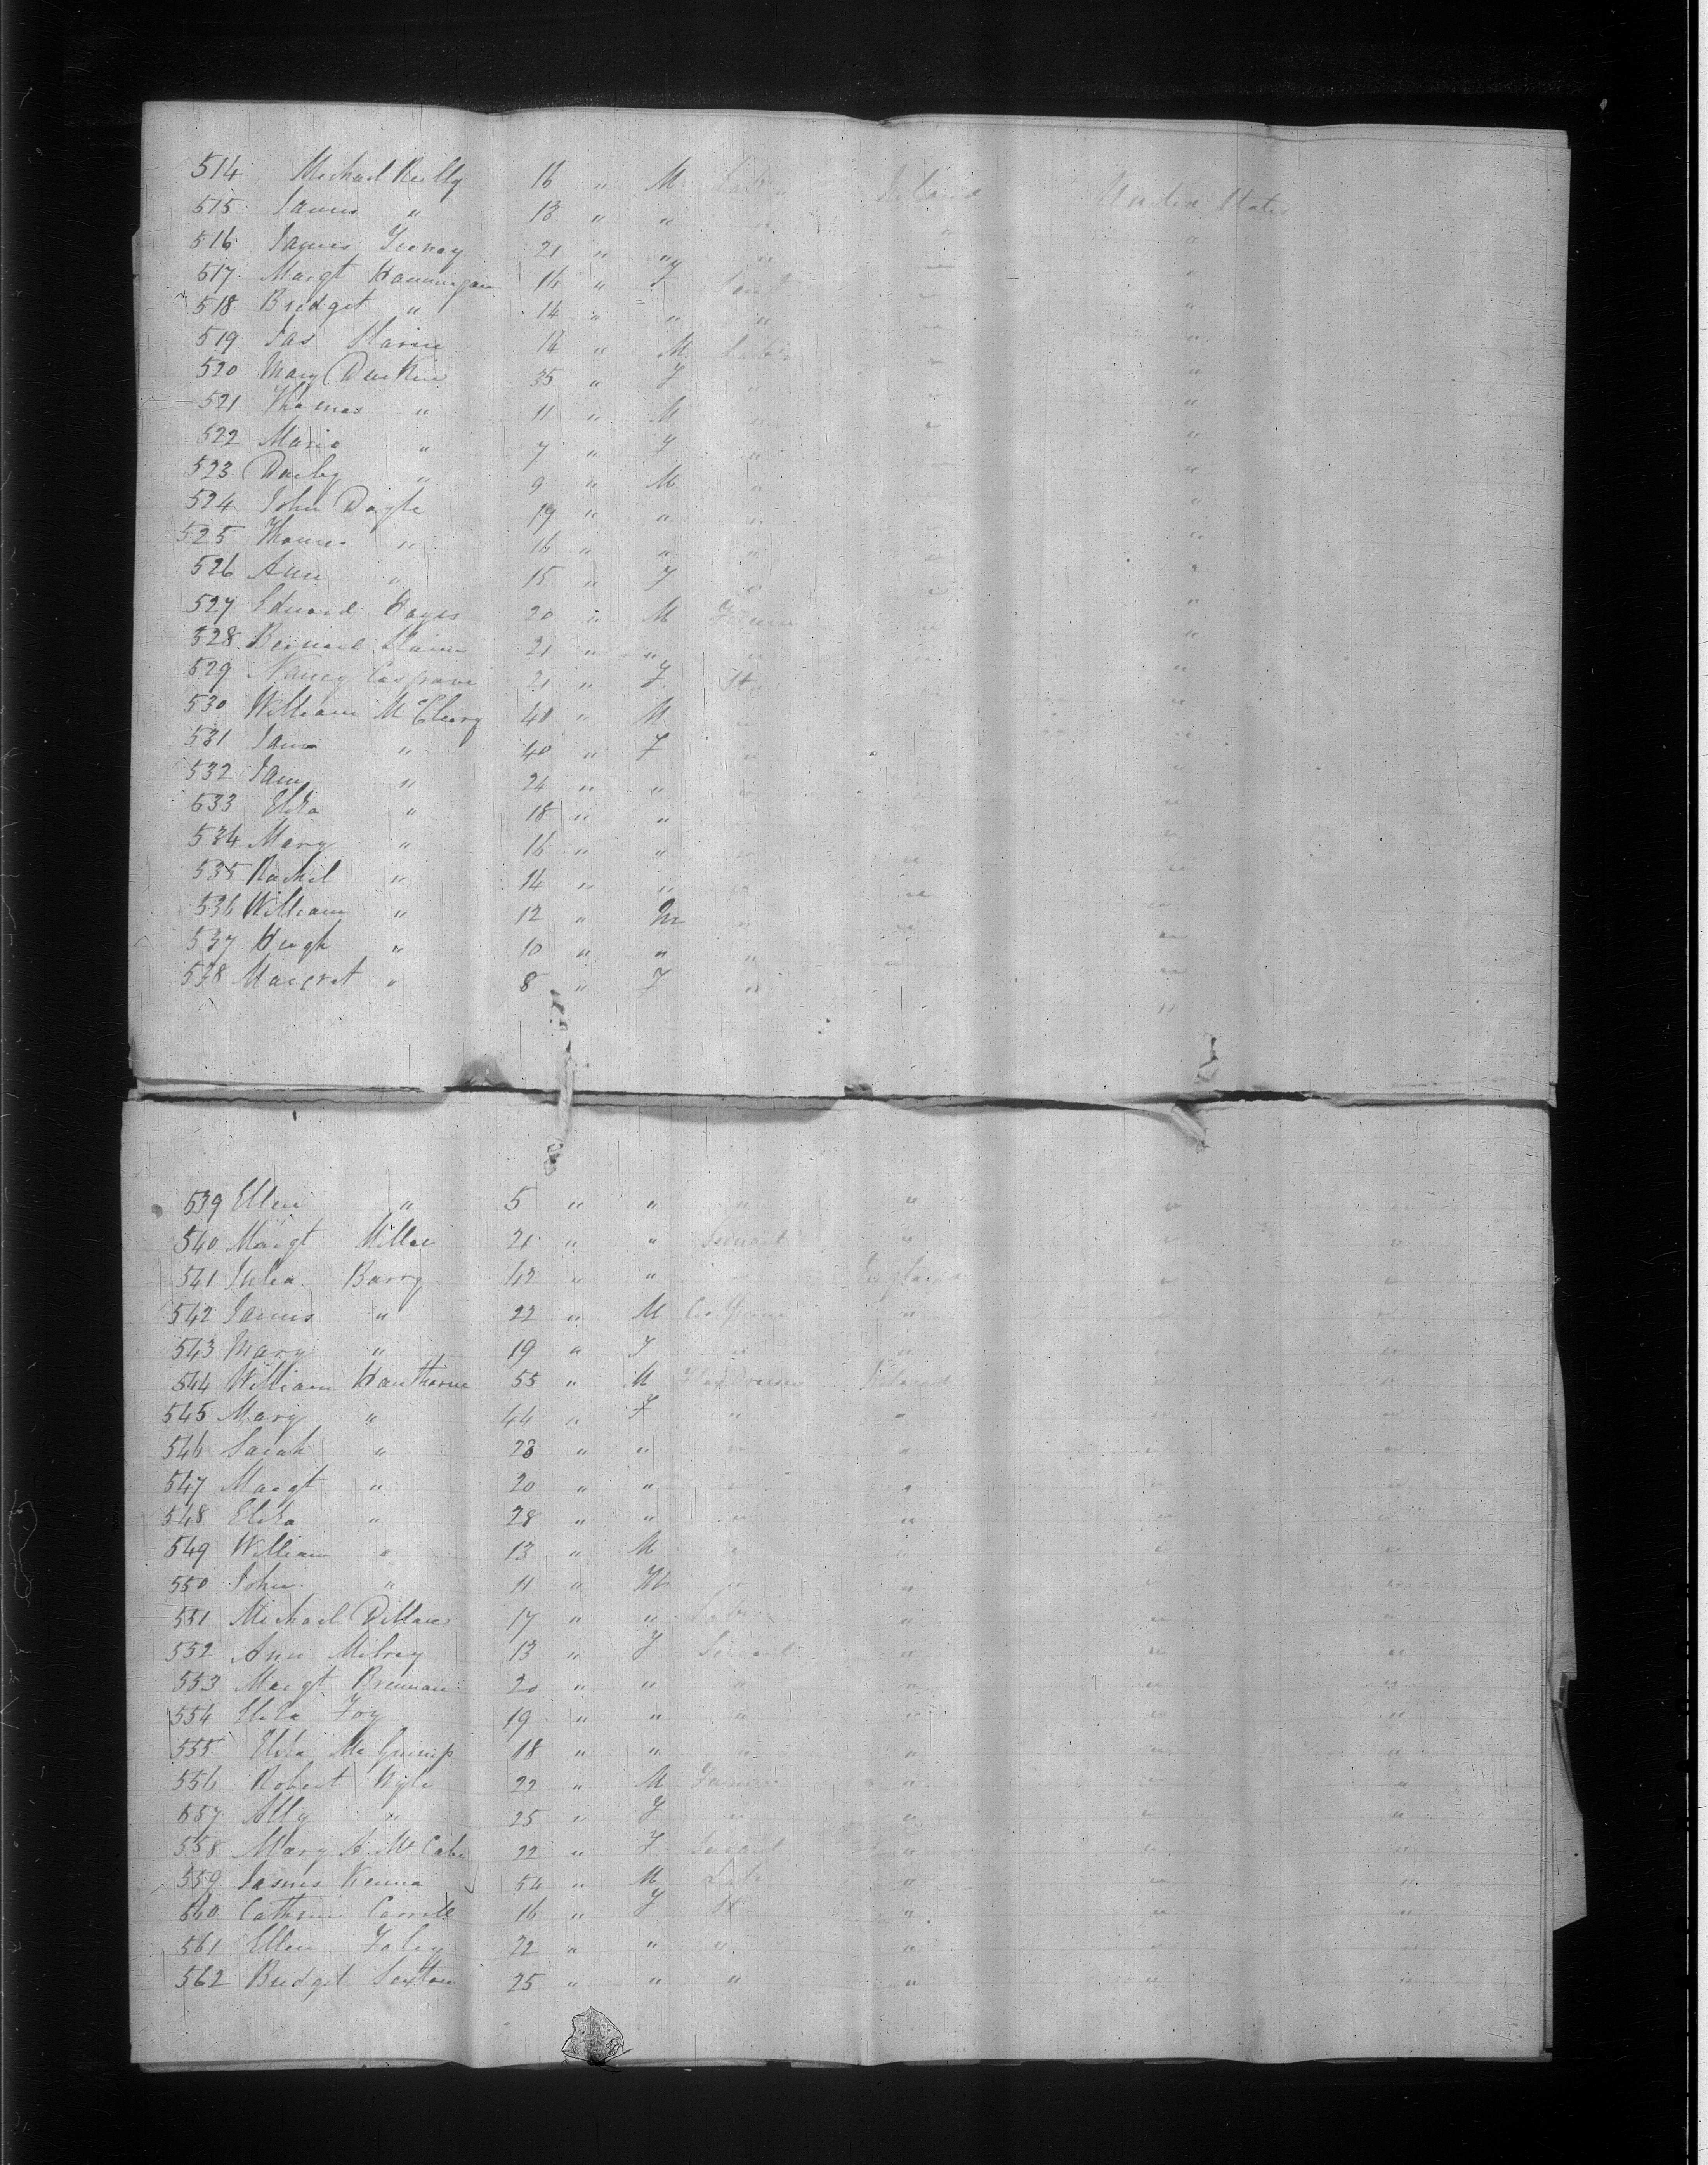 514 Michael Reilly 16 " M Labr Ireland United States
515 James " 13 " " " " "
516 James 21 " " " " "
517 Margt Hannigan 16 " F Servt " "
518 Bridget " 14 " " " " "
519 Jas 14 " M Labr " "
520 Mary Durkin 35 " F " " "
521 Thomas " 11 " M " " "
522 Maria " 7 " F " " "
523 Darby " 9 " M " " "
524 John Doyle 19 " " " " "
525 Thomas " 16 " " " " "
526 Ann " 15 " F " " "
527 Edward Hayes 20 " M Farmer " "
528 Bernard 21 " " " " "
529 Nancy Cosgrave 21 " F " "
530 William McCleary 40 " M " " "
531 Jane " 40 " F " " "
532 Jane " 24 " " " "
533 Eliza " 18 " " " "
534 Mary " 16 " " " " "
535 Rachel " 14 " " " " "
536 William " 12 " M " " "
537 Hugh " 10 " " " " "
538 Margret " 8 " F " "
539 Ellen " 5 " " " " " "
540 Margt Miller 21 " " Servant " " "
541 Julia Barry 42 " " " England " "
542 James " 22 " M " " "
543 Mary " 19 " F " " " "
544 William Hawthorne 55 " M Flax Dresser Ireland " "
545 Mary " 44 " F " " " "
546 Sarah " 23 " " " " " "
547 Margt " 20 " " " " " "
548 Eliza " 28 " " " " " "
549 William " 13 " M " " " "
550 John " 11 " M " " " "
551 Michael Dillon 17 " " Labr " " "
552 Ann Milroy 13 " F Servant " " "
553 Margt Brennan 20 " " " " " "
554 Eliza Foy 19 " " " " " "
555 Eliza 18 " " " " " "
556 Robert Wylie 22 " M Farmer " " "
557 Ally " 25 " F " " " "
558 Mary A McCabe 22 " F Servant " " "
559 James Kenna 54 " M Labr " " "
560 Cathrine Carroll 16 " F St " " "
561 Ellen Foley 22 " " " " " "
562 Bridget Sexton 25 " " " " " "